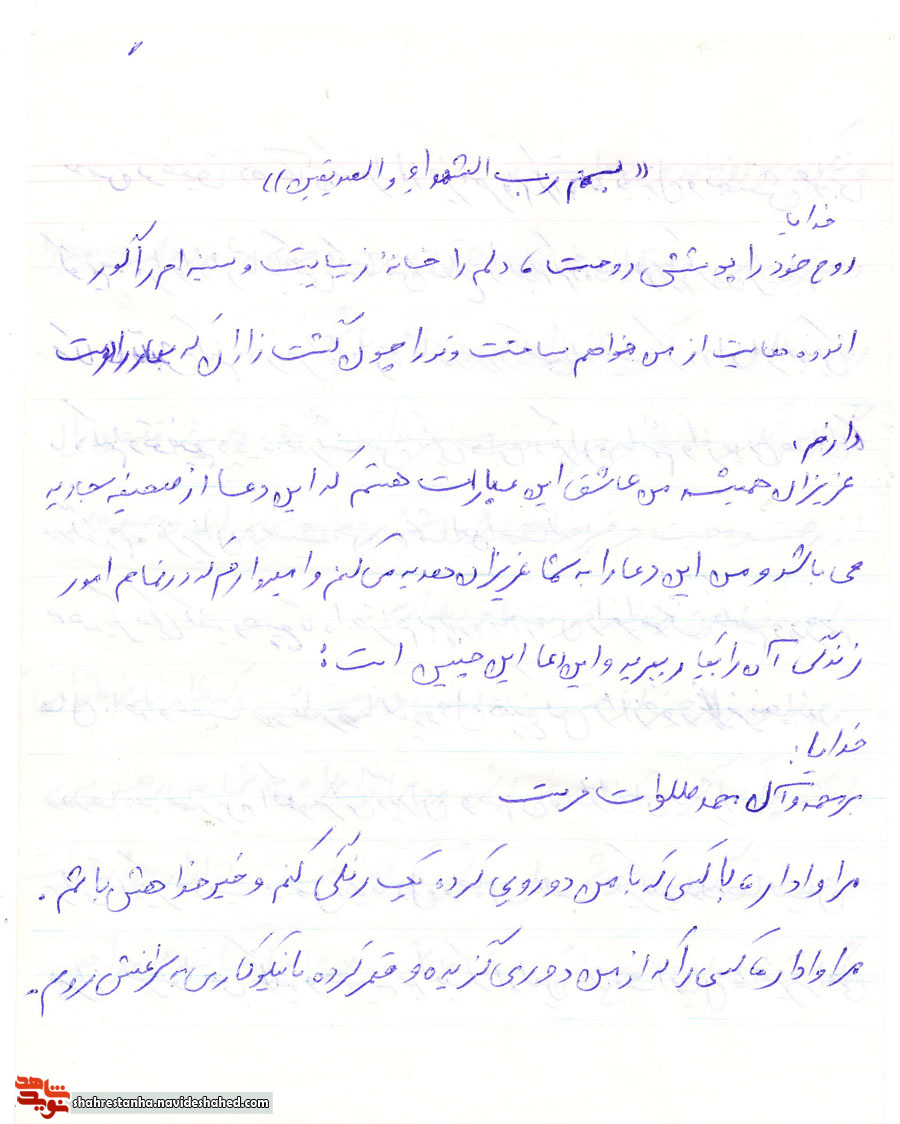 «بسم رب الشهداء و الصدیقین»
خدایا
روح خود را پوششی روحت، دلم را خانهٔ زیبایت و سینه ام را
از من خواهم ساخت و را چون کشت زاران که
دارم.
عزیزان همیشه من عاشق این عبارات هستم که این دعا از صحیفه سجادیه
می باشد و من این دعا را به شما عزیزان هدیه می کنم و امیدوارم که در تمام امور
زندگی آن را بکار ببرید و این دعا این چنین است:
خدایا:
بر محمد و آل محمد صلوات فرست
مرا وادار، با کسی که با من دورویی کرده یک رنگی کنم و خیرخواهش باشم.
مرا وادار، کسی را که از من دوری گزیده و قهر کرده با نیکوکاری به سراغش روم.
شاهد
نوید
shahrestanha.navideshahed.com